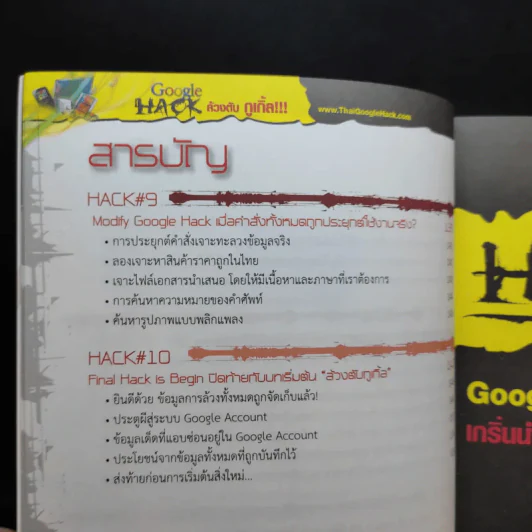 Google
HACK ล้วงตับ กูเกิ้ล!!!
www.ThaiGoogleHack.com
สารบัญ
HACK#9
Modify Google Hack เมื่อคำสั่งทั้งหมดถูกประยุกต์ใช้งานจริง?
• การประยุกต์คำสั่งเจาะทะลวงข้อมูลจริง
• ลองเจาะหาสินค้าราคาถูกในไทย
• เจาะไฟล์เอกสารนำเสนอ โดยให้มีเนื้อหาและภาษาที่เราต้องการ
• การค้นหาความหมายของคำศัพท์
• ค้นหารูปภาพแบบพลิกแพลง
HACK#10
Final Hack is Begin ปิดท้ายกับบทเริ่มต้น "ล้วงตับกูเกิ้ล"
• ยินดีด้วย ข้อมูลการล้วงทั้งหมดถูกจัดเก็บแล้ว!
• ประตูผีสู่ระบบ Google Account
• ข้อมูลเด็ดที่แอบซ่อนอยู่ใน Google Account
• ประโยชน์จากข้อมูลทั้งหมดที่ถูกบันทึกไว้
• ส่งท้ายก่อนการเริ่มต้นสิ่งใหม่...